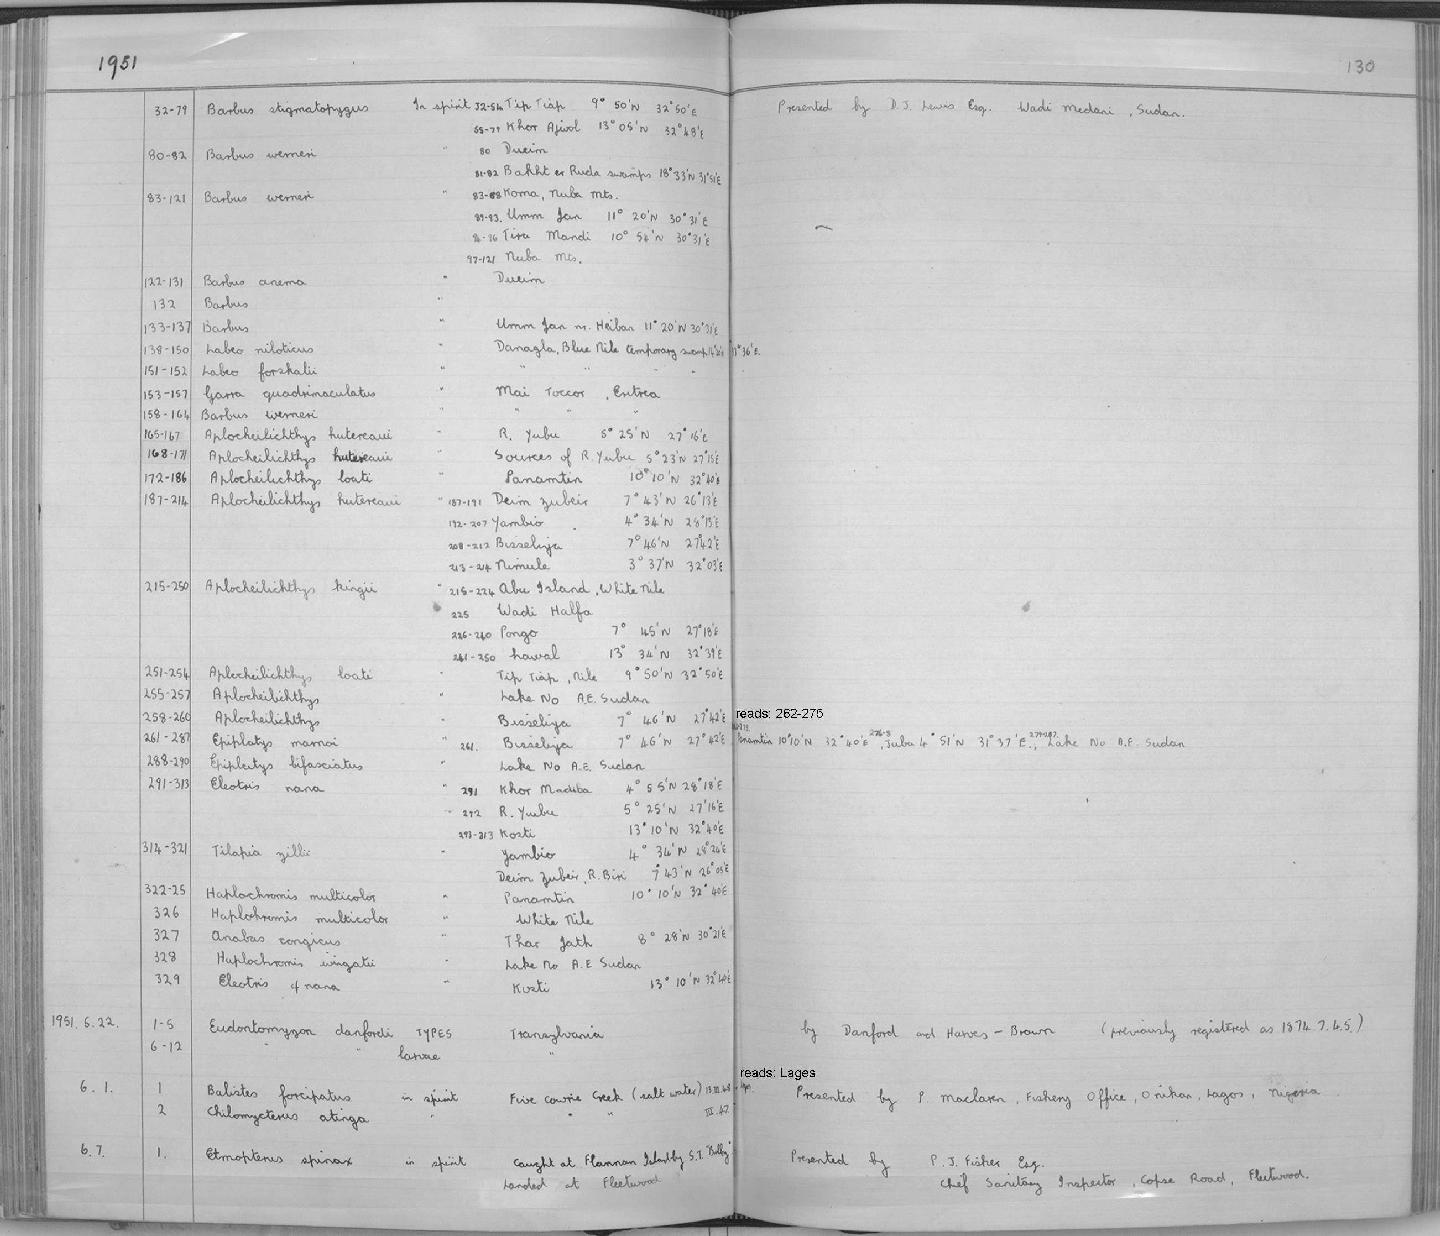 1951
130
32-79 Barbus stigmatopygus In spirit 32-54 Tip Tiap 9° 50'N 32°50'E Presented by D.J. Lewis Esq. Wadi Medani, Sudan.
55-79 Khor Ajwol 13°05'N 32°48'E
80-82 Barbus werneri " 80 Dueim
81-82 Bakht er Ruda swamps 18°33'N 31°51'E
83-121 Barbus werneri " 83-88 Koma, Nuba Mts.
89-93. Umm Jan 11° 20'N 30°31'E
94-96 Tira Mandi 10° 54'N 30°31'E
97-121 Nuba Mts.
122-131 Barbus anema " Dueim
132 Barbus "
133-137 Barbus " Umm Jan nr. Heiban 11°20'N 30°31'E
138-150 Labeo niloticus " Danagla, Blue Nile temporary swamp
151-152 Labeo forskalii " " " " "
153-157 Garra quadrimaculatus " Mai Toccor, Eritrea
158-164 Barbus werneri " " " "
165-167 Aplocheilichthys hutereaui " R. Yubu 5° 25'N 27°16'E
168-171 Aplocheilichthys hutereaui " Sources of R. Yubu 5°23'N 27°15'E
172-186 Aplocheilichthys loati " Panamtin 10°10'N 32°40'E
187-214 Aplocheilichthys hutereaui " 187-191 Deim Zubeir 7° 43'N 26°13'E
192-207 Yambio 4° 34'N 28°13'E
208-212 Bisseliya 7°46'N 27°42'E
213-214 Nimule 3° 37'N 32°03'E
215-250 Aplocheilichthys kingii " 215-224 Abu Island, White Nile
225 Wadi Halfa
226-240 Pongo 7° 45'N 27°18'E
241-250 hawal 13° 34'N 32°39'E
251-254 Aplocheilichthys loati " Tip Tiap, Nile 9°50'N 32°50'E
255-257 Aplocheilichthys " Lake No A.E. Sudan
258-260 Aplocheilichthys " Bisseliya 7° 46'N 27°42'E
reads: 262-275
261-287 Epiplatys marnoi " 261. Bisseliya 7° 46'N 27°42'E Panamtin 10°10'N 32°40'E, Juba 4° 51'N 31°37'E., Lake No A.E. Sudan
288-290 Epiplatys bifasciatus " Lake No A.E. Sudan
291-313 Eleotris nana " 291 Khor Madiba 4° 55'N 28°18'E
" 292 R. Yubu 5° 25'N 27°16'E
293-313 Kosti 13°10'N 32°40'E
314-321 Tilapia zillii " Yambio 4° 34'N 28°24'E
Deim Zubeir, R. Biri 7°43'N 26°05'E
322-25 Haplochromis multicolor " Panamtin 10°10'N 32°40'E
326 Haplochromis multicolor " White Nile
327 Anabas congicus " Thar Jath 8° 28'N 30°21'E
328 Haplochromis wingatii " Lake No A.E Sudan
329 Eleotris nana " Kosti 13°10'N 32°40'E
1951.5.22. 1-5 Eudontomyzon danfordi TYPES Transylvania by Danford and Harves-Brown (previously registered as 1874.7.4.5.)
6-12 " " larvae "
reads: Lages
6.1. 1 Balistes forcipatus in spirit Five Cowrie Creek (salt water) 13.III.48 Presented by P. Maclaren, Fishery Office, Onikan, Lagos, Nigeria
2 Chilomycterus atinga " " " III.47
6.7. 1. Etmopterus spinax in spirit Caught at Flannan Isle by S.T. Presented by P.J. Fisher Esq.
Landed at Fleetwood Chief Sanitary Inspector, Copse Road, Fleetwood.